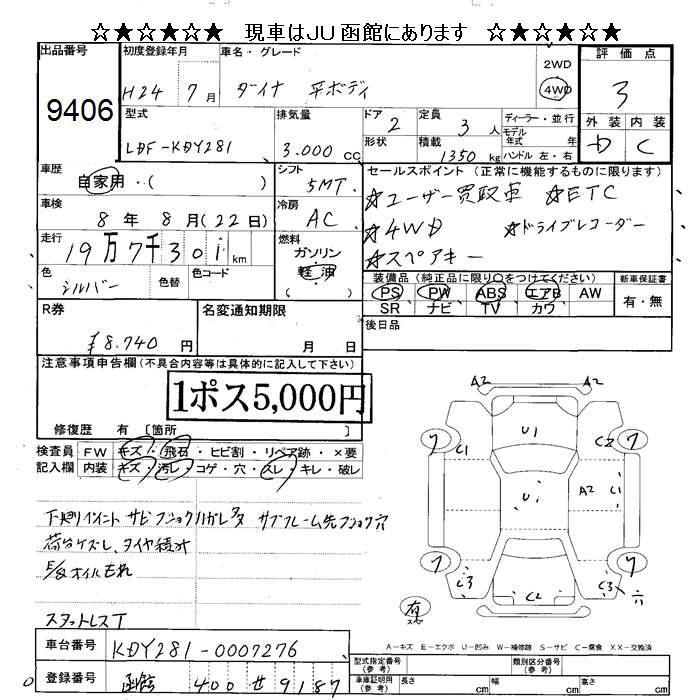 ☆★☆★☆★ 現車はJU函館にあります ☆★☆★☆★
出品番号
9406
初度登録年月
H24 7月
車名・グレード
ダイナ 平ボディ
2WD
4WD
評価点
3
外装 内装
D C
型式
LDF-KDY281
排気量
3.000cc
ドア
2
定員
3人
形状
積載
1350kg
ディーラー・並行
モデル年式 年
ハンドル 左・右
車歴
自家用・( )
シフト
5MT
車検
8年8月(22日)
冷房
AC
走行
19万7千301km
燃料
ガソリン
軽油
( )
色
シルバー
色替
色コード
セールスポイント(正常に機能するものに限ります)
☆ユーザー買取車 ☆ETC
☆4WD ☆ドライブレコーダー
☆スペアキー
装備品(純正品に限り○をつけてください)
PS PW ABS エアB AW
SR ナビ TV カワ
新車保証書
有・無
後日品
R券
¥8.740円
名変通知期限
月 日
注意事項申告欄(不具合内容等は具体的に記入して下さい)
1ポス5,000円
修復歴 有〔箇所 〕
検査員記入欄
FW キズ・飛石・ヒビ割・リペア跡・×要
内装 キズ・汚レ・コゲ・穴・スレ・キレ・破レ
サビ フショク ハガレ多 サブフレーム先フショク穴
荷台ケズレ、タイヤ積オ
オイルもれ
スタットレスT
A2 A2
ワ C1 U1 C2 ワ
Ui A2 C1
ワ C3 C2 C3 ワ
穴
有
スペ
A-キズ E-エクボ U-凹み W-補修跡 S-サビ C-腐食 XX-交換済
車台番号
KDY281-0007276
登録番号
函館 400 せ 9187
型式指定番号(参考)
類別区分番号(参考)
車庫証明用(参考)
長さ cm
幅 cm
高さ cm